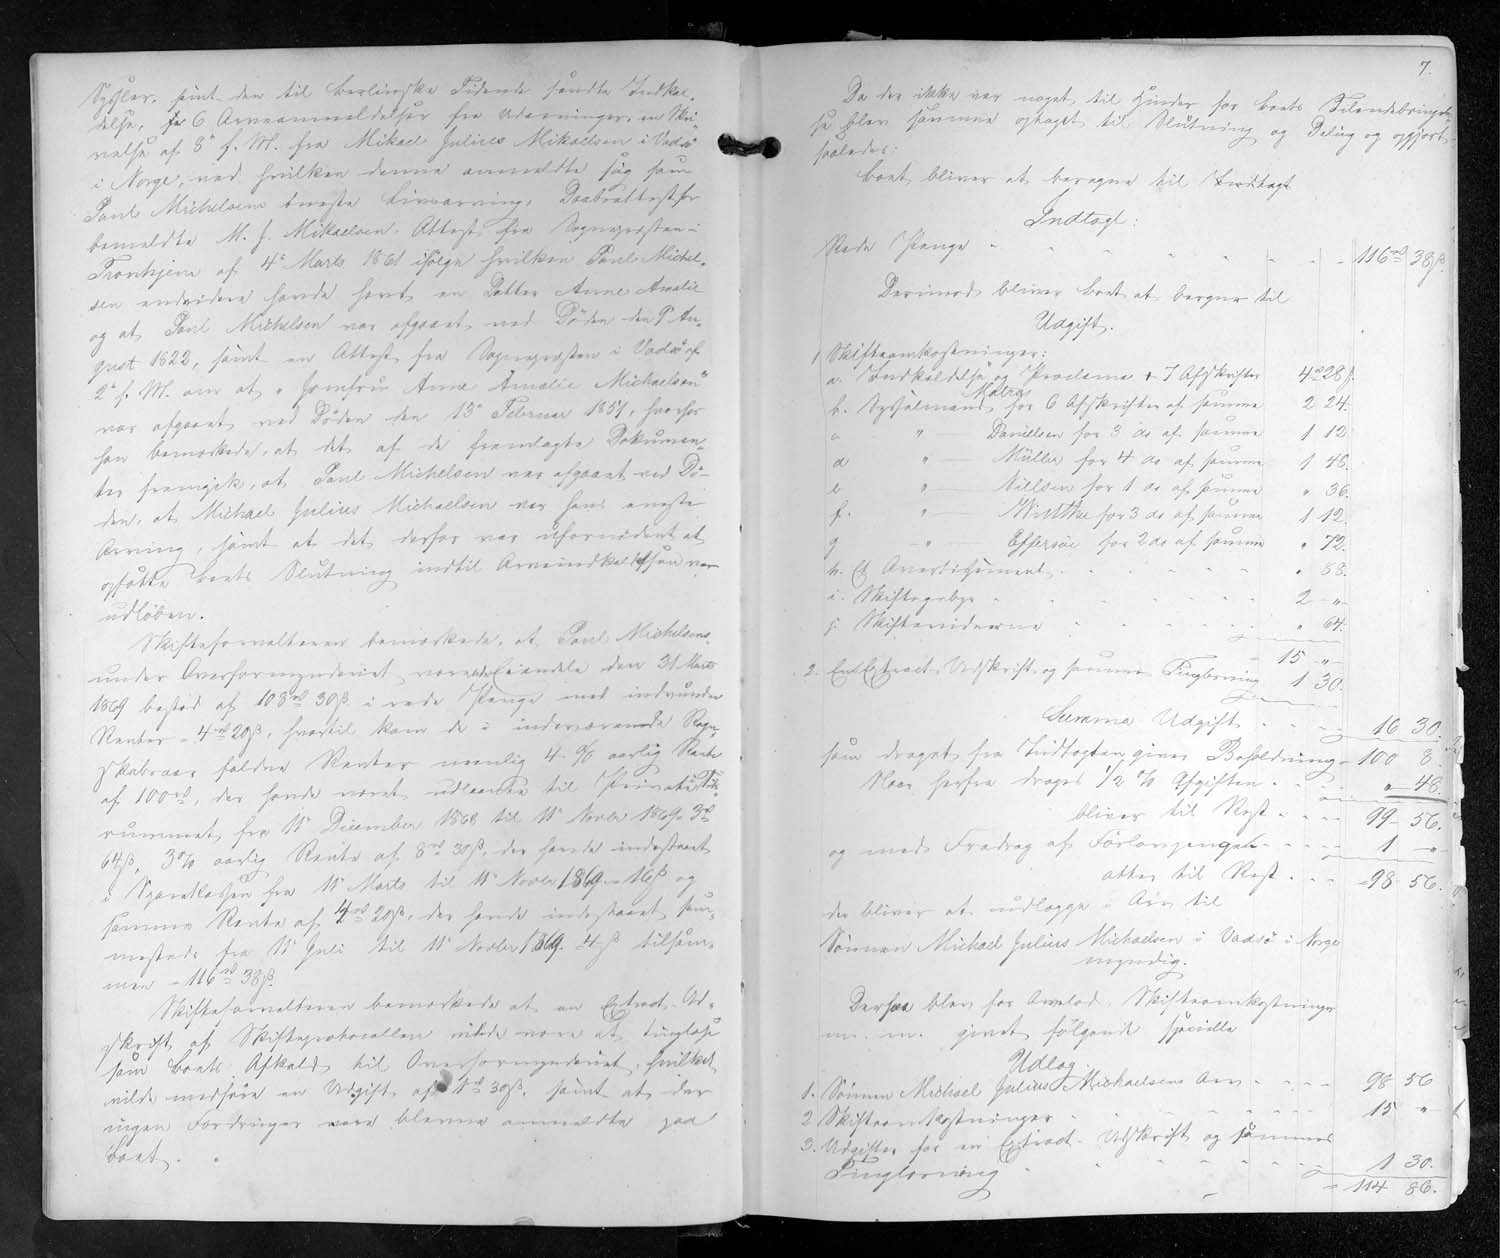 Sysler, samt den til Berlinske Tidende sendte Indkal-
delse, 6 Arveanmeldelser fra Udarvinger, en Skri-
velse af 8' f. M. fra Mikael Julius Mikaelsen i Vadsö
i Norge, ved hvilken denne anmeldte sig som
Paul Michelsens eneste Livsarving, Daabsattest for
bemeldte M. J. Mikaelsen, Attest fra Sognepræsten i
Tronhjem af 4' Marts 1861 ifölge hvilken Paul Michel-
sen endvidere havde havt en Datter Anne Amalie
og at Paul Michelsen var afgaaet ved Döden den 9 Au-
gust 1822, samt en Attest fra Sognepræsten i Vadsö af
2' f. M. om at "Jomfru Anne Amalie Michaelsen"
var afgaaet ved Döden den 15' Februar 1857, hvorfor
han bemærkede, at det af de fremlagte Dokumen-
ter fremgik, at Paul Michelsen var afgaaet ved Dö-
den, at Michael Julius Michaelsen var hans eneste
Arving, samt at det derfor var ufornödent at
opsætte Boets Slutning indtil Arveindkaldelsen var
udlöben.
Skifteforvalteren bemærkede, at Paul Michelsens
under Overformynderiet værende Eiendele den 31 Marts
1869 bestod af 108 rd 30 ß i rede Penge med indvundne
Renter 4 rd 20 ß, hvortil kom de i indeværende Regn-
skabsaar faldne Renter nemlig 4 % aarlig Rente
af 100 rd, der havde været udlaante til Private i Tids-
rummet fra 11' December 1868 til 11' Novbr 1869 3 rd
64 ß, 3 % aarlig Rente af 8 rd 30 ß, der havde indestaaet
i Sparekassen fra 11' Marts til 11' Novbr 1869 - 16 ß og
samme Rente af 4 rd 20 ß, der havde indestaaet sam-
mesteds fra 11' Juli til 11' Novbr 1869 4 ß tilsam-
men - 116 rd 38 ß.
Skifteforvalteren bemærkede at en Extract-Ud-
skrift af Skifteprotocollen vilde være at tinglæse
som Boets Afkald til Overformynderiet, hvilket
vilde medföre en Udgift af 1 rd 30 ß, samt at der
ingen Fordringer vare blevne anmeldte paa
Boet.
7.
Da der ikke var noget til Hinder for Boets Tilendebringel-
se blev samme optaget til Slutning og Deling og opgjort
saaledes:
Boet bliver at beregne til Indtægt
Indtægt:
Rede Penge " " " " " " " 116 rd 38 ß.
Derimod bliver Boet at beregne til
Udgift.
1 Skifteomkostninger:
a. Indkaldelse og Proclama + 7 Afskrifter 4 rd 28 ß.
b. Sysselmand Mætres for 6 Afskrifter af samme 2 24.
c " — Danielsen for 3 do af samme 1 12
d " — Müller for 4 do af samme 1 48.
e " — Nillsen for 1 do af samme " 36.
f. " — Winther for 3 do af samme 1 12.
g " — Effersöe for 2 do af samme " 72.
h. Et Avertissement " " " " " 88.
i. Skiftegebyr " " " " " 2 - " -
j. Skiftevidnerne " " " " " 64.
15 - " -
2. En Extract-Udskrift og sammes Tinglæsning 1 30.
Summa Udgift - - - - 16 30.
som draget fra Indtægten giver Beholdning - 100 8.
Naar herfra drages 1/2 % Afgiften - - - " 48.
bliver til Rest - - - - 99 - 56.
og med Fradrag af - - - - 1 - " -
atter til Rest - - - - 98 56.
der bliver at udlægge i Arv til
Sönnen Michael Julius Michaelsen i Vadsö i Norge
myndig.
Derpaa blev for Arvelod, Skifteomkostninger
m. m. givet fölgende specielle
Udlæg
1. Sönnen Michael Julius Michaelsens Arv - - - - 98 56
2 Skifteomkostninger " " " " " 15 " -
3. Udgifter for en Extract-Udskrift og sammes
Tinglæsning " " " " " 1 30.
= 114 86.